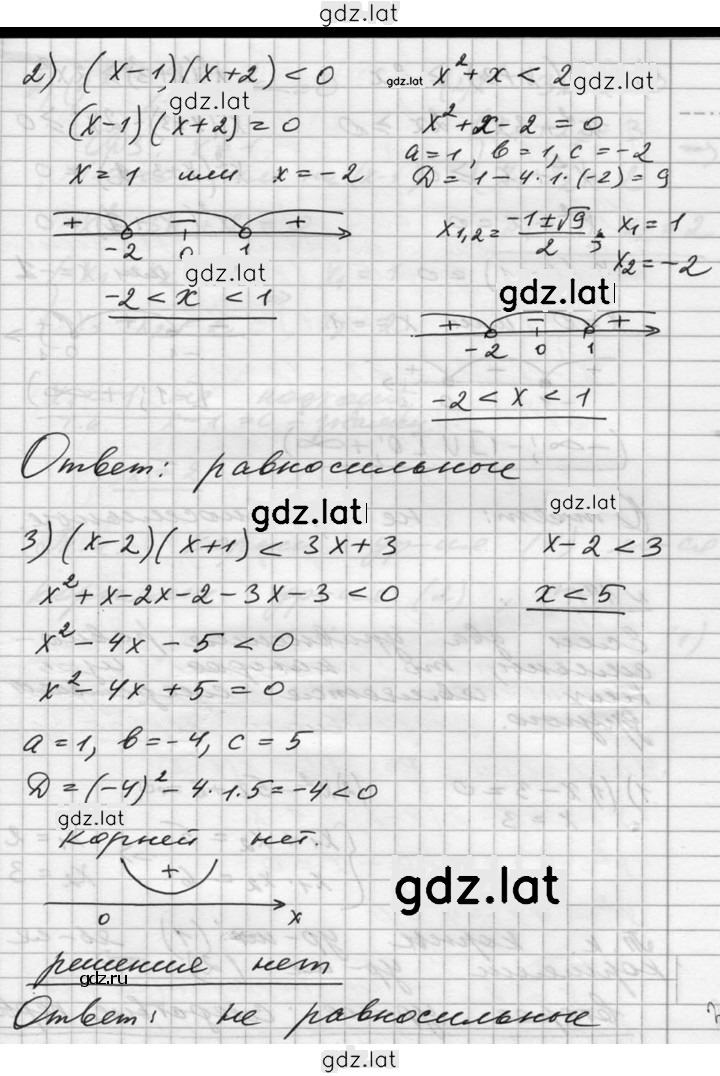 gdz.lat
2) (x-1)(x+2) < 0
gdz.lat
(x-1)(x+2) = 0
x = 1 или x = -2
+ − +
-2 0 1
gdz.lat
-2 < x < 1
gdz.lat x² + x < 2 gdz.lat
x² + x - 2 = 0
a = 1, b = 1, c = -2
D = 1 - 4·1·(-2) = 9
x₁,₂ = (-1 ± √9)/2 ; x₁ = 1
x₂ = -2
gdz.lat
+ − +
-2 0 1
-2 < x < 1
Ответ: равносильные
gdz.lat
gdz.lat
3) (x-2)(x+1) < 3x+3
x² + x - 2x - 2 - 3x - 3 < 0
x² - 4x - 5 < 0
x² - 4x + 5 = 0
a = 1, b = -4, c = 5
D = (-4)² - 4·1·5 = -4 < 0
gdz.lat
корней нет.
+
0 x
решение нет
gdz.ru
x - 2 < 3
x < 5
gdz.lat
Ответ: не равносильные
gdz.lat